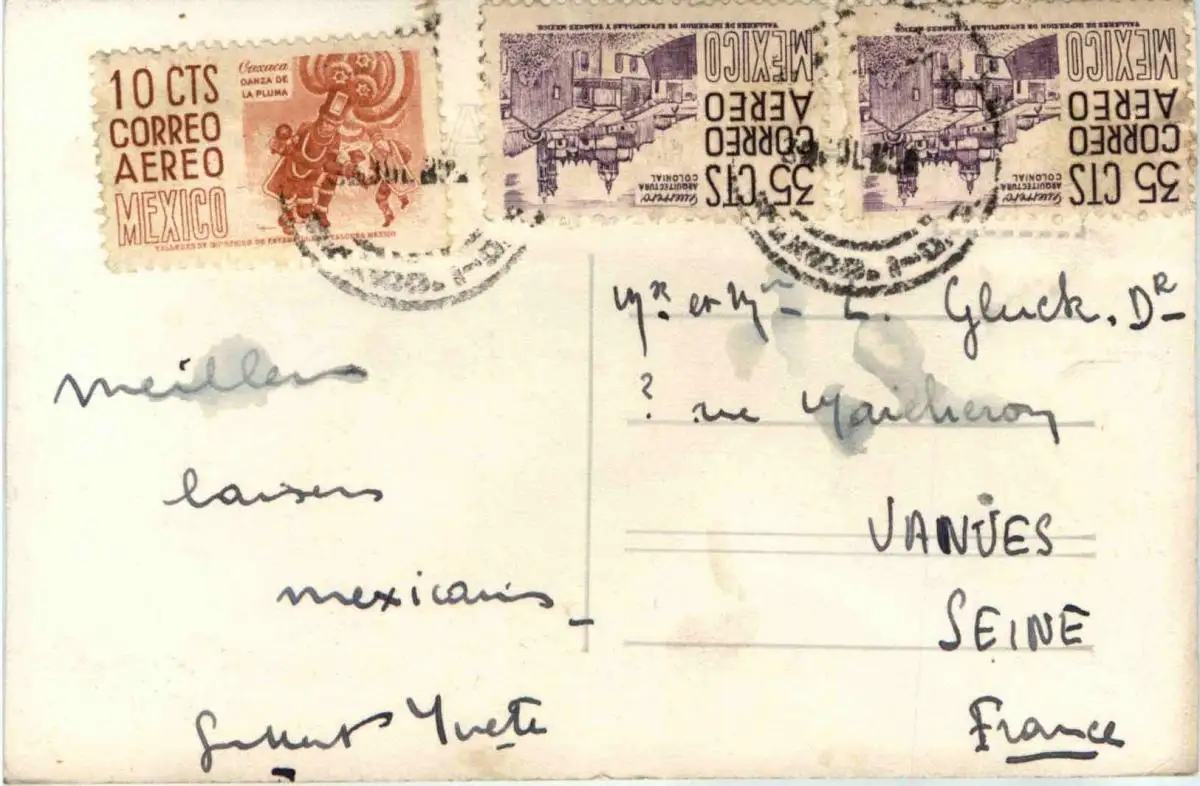 10 CTS
CORREO
AEREO
MEXICO
Oaxaca
DANZA DE
LA PLUMA
TALLERES DE IMPRESION DE ESTAMPILLAS Y VALORES MEXICO
35 CTS
CORREO
AEREO
MEXICO
Guerrero
ARQUITECTURA
COLONIAL
TALLERES DE IMPRESION DE ESTAMPILLAS Y VALORES MEXICO
35 CTS
CORREO
AEREO
MEXICO
Guerrero
ARQUITECTURA
COLONIAL
TALLERES DE IMPRESION DE ESTAMPILLAS Y VALORES MEXICO
JUL
JUL
Meilleurs
baisers
mexicains
Gilbert Yvette
Mr et Mm L. Gluck. DR
? rue
VANVES
SEINE
France